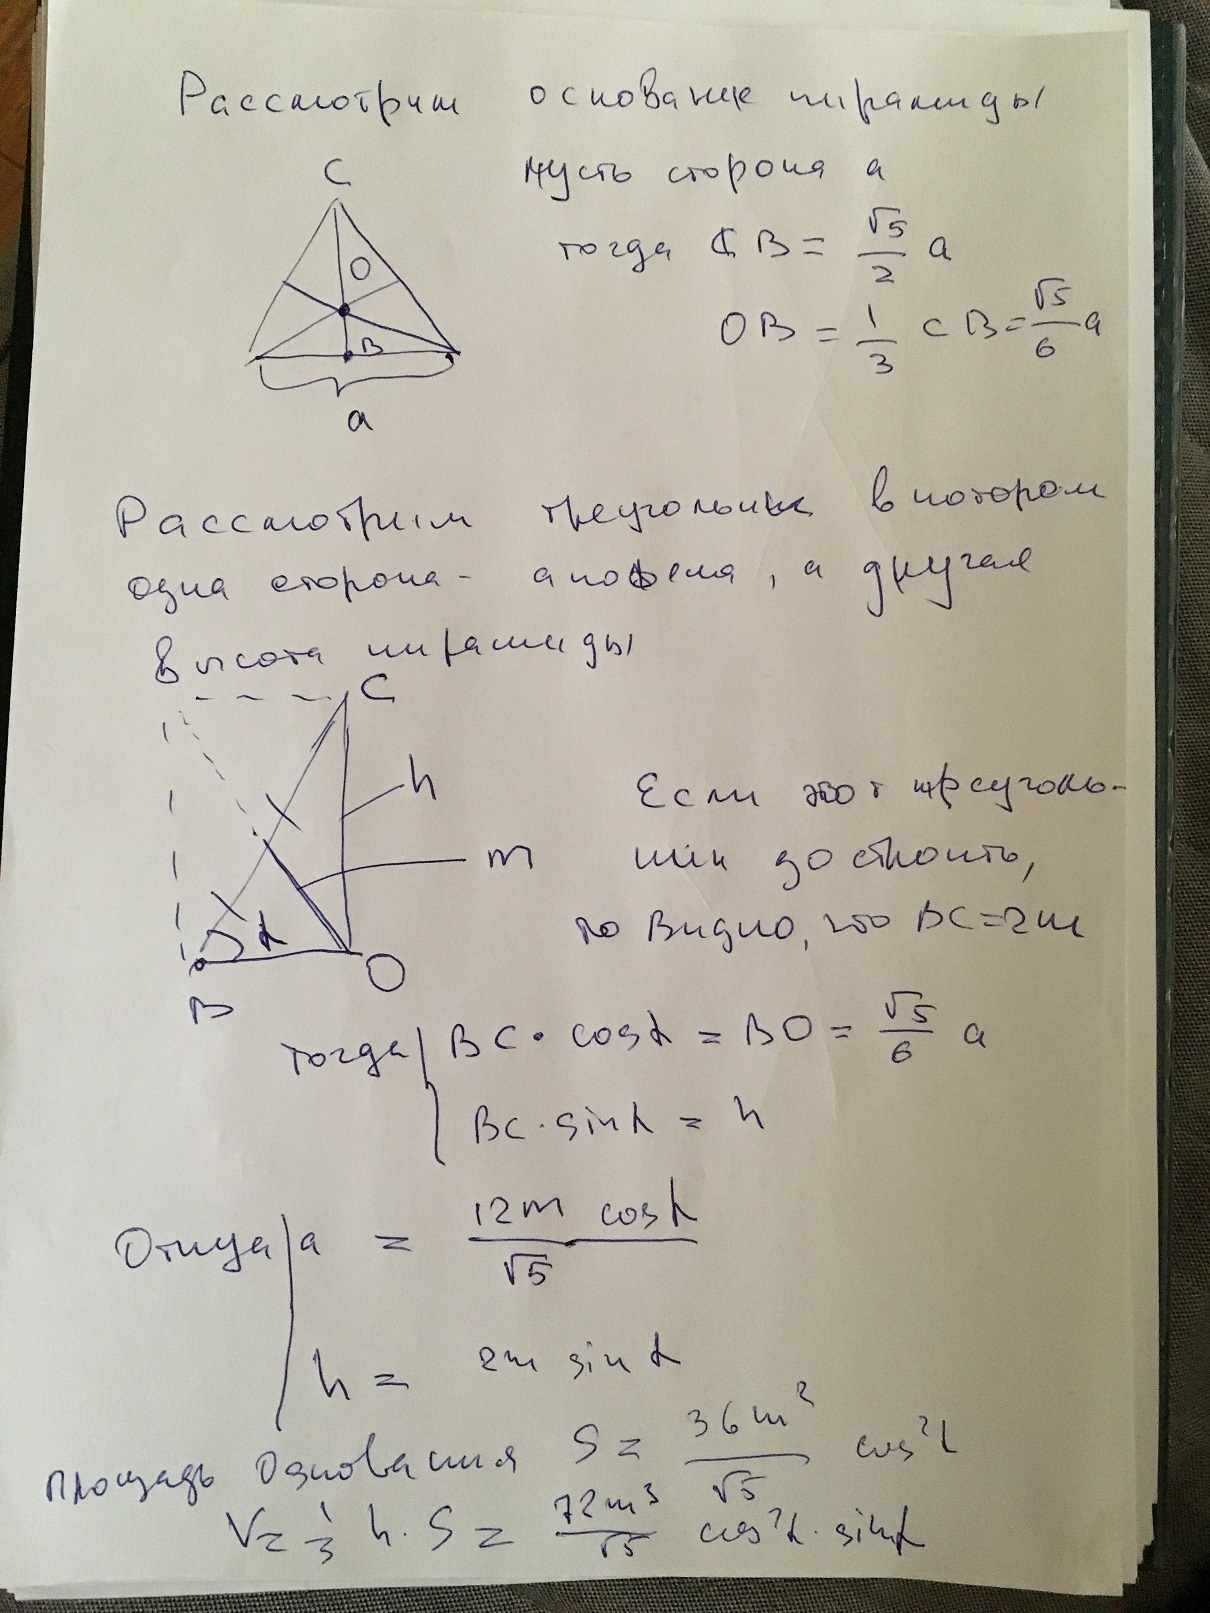 Рассмотрим основание пирамиды
C
пусть сторона a
тогда CB = √5/2 a
O
OB = 1/3 CB = √5/6 a
B
a
Рассмотрим треугольник в котором
одна сторона - апофема, а другая
высота пирамиды
C
h
Если этот треуголь-
m
ник достроить,
то видно, что BC=2m
α
O
B
тогда BC · cosα = BO = √5/6 a
BC · sinα = h
Откуда a = 12m cosα / √5
h = 2m sinα
площадь основания S = 36m²/√5 cos²α
V = 1/3 h · S = 72m³/√5 cos²α · sinα